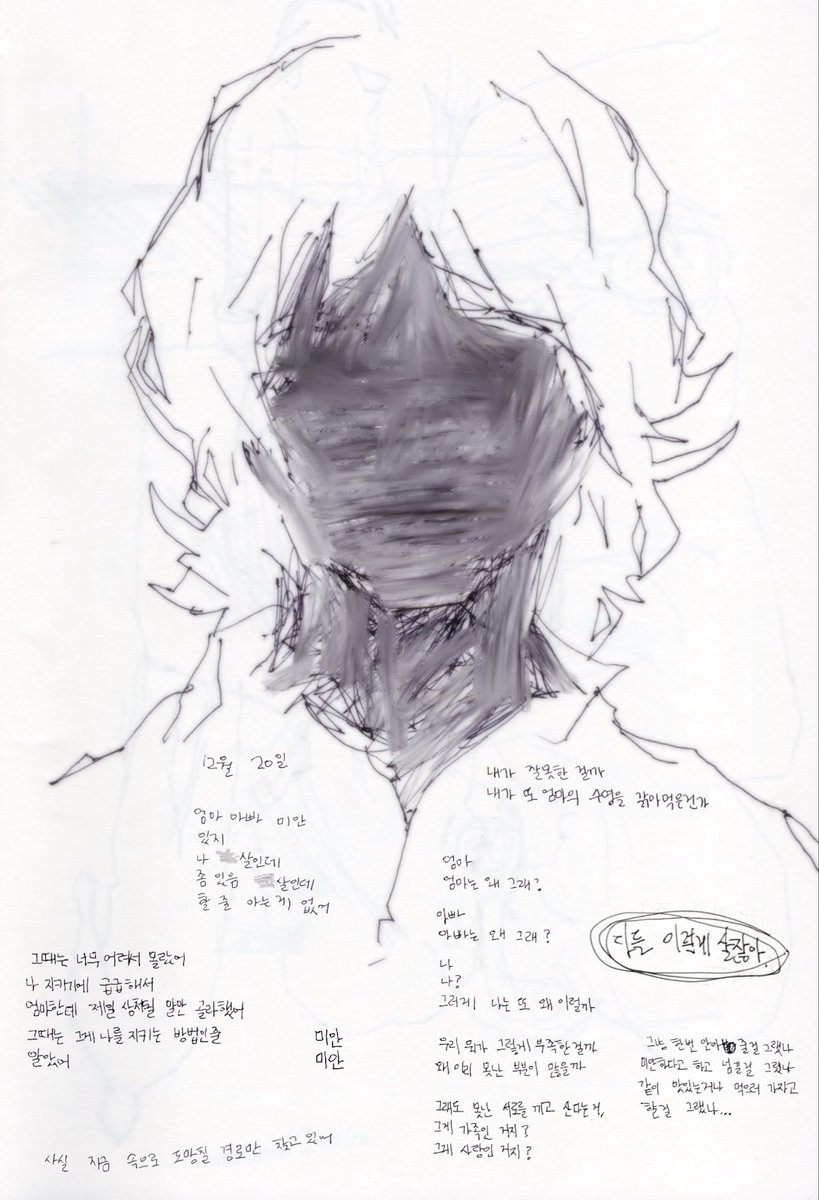 12월 20일
엄마 아빠 미안
있지
나 살인데
좀 있음 살인데
할 줄 아는게 없어
그때는 너무 어려서 몰랐어
나 지키기에 급급해서
엄마한테 제일 상처될 말만 골라했어
그때는 그게 나를 지키는 방법인줄
알았어
미안
미안
사실 지금 속으로 도망칠 경로만 찾고 있어
내가 잘못한 걸까
내가 또 엄마의 수명을 갉아먹은건가
엄마
엄마는 왜 그래?
아빠
아빠는 왜 그래?
나
나?
그러게 나는 또 왜 이럴까
우리 뭐가 그렇게 부족한걸까
왜 이리 못난 부분이 많을까
그래도 못난 서로를 끼고 산다는거,
그게 가족인 거지?
그게 사랑인 거지?
다들 이렇게 살잖아.
그냥 한번 안아 줄걸 그랬나
미안하다고 하고 넘길걸 그랬나
같이 맛있는거나 먹으러 가자고
할걸 그랬나...